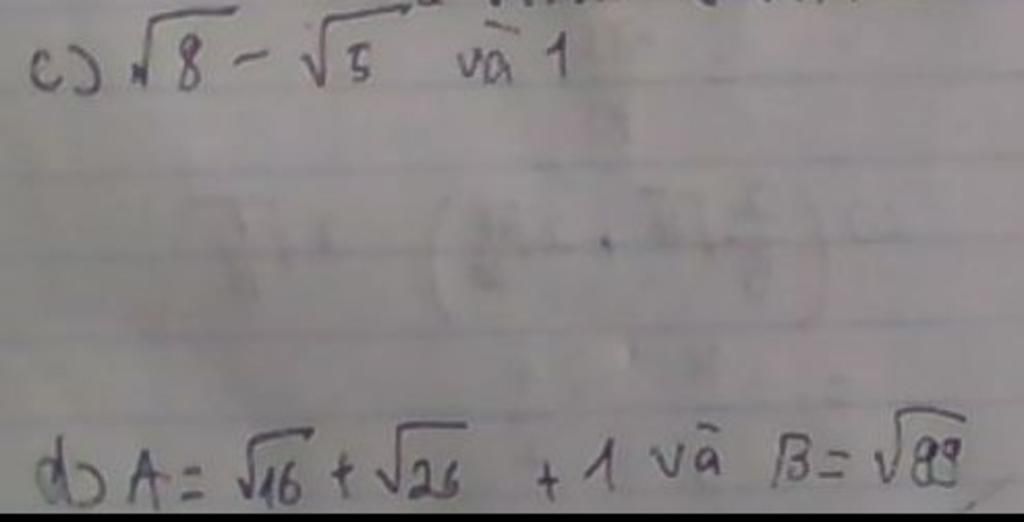 c) √8 - √5 và 1
d) A = √16 + √26 + 1 và B = √99